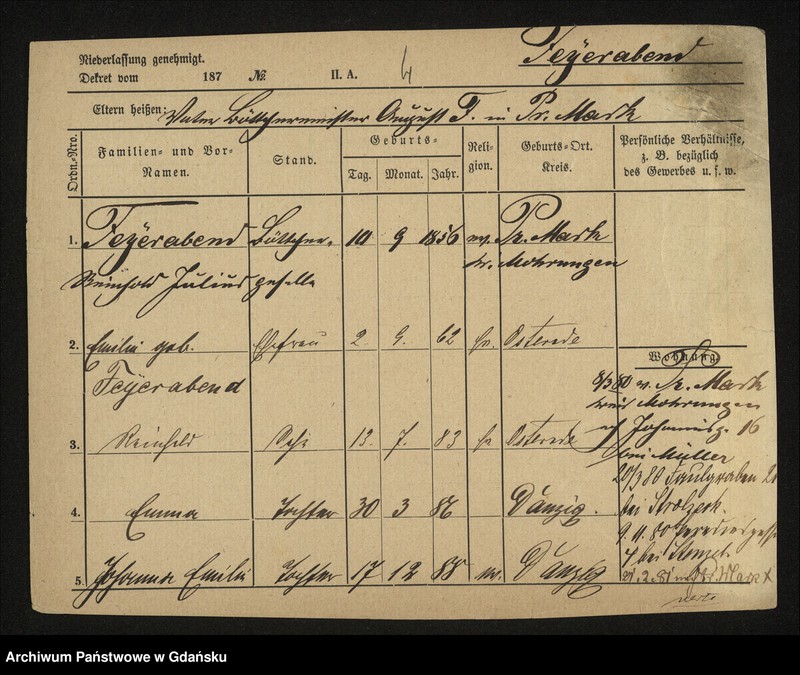 Niederlassung genehmigt.
Dekret vom 187 № II. A. 4
Feÿerabend
Eltern heißen: Vater Böttchermeister August F. in Pr. Mark
Ordn.-Nro. Familien- und Vor-Namen. Stand. Geburts- Tag. Monat. Jahr. Religion. Geburts-Ort. Kreis. Persönliche Verhältnisse, z. B. bezüglich des Gewerbes u. s. w.
1. Feÿerabend Böttcher- 9 1856 ev. Pr. Mark
Reinhold Julius geselle kr. Mohrungen
2. Emilie geb. Ehefrau 2. 9. 62 Osterode
Feÿerabend
Wohnung.
8/3 80 v. Pr. Mark
Kreis Mohrungen
3. Reinhold 13. 7. 83 Osterode
Johannisg. 16
bei Müller
20/3 80 Faulgraben
4. Emma Tochter 30 3 86 Danzig.
bei
9. 11. 80
4 bei
5. Johanna Emilie Tochter 17 12 88 ev. Danzig
21. 2. 81 Pr. Mark
Archiwum Państwowe w Gdańsku